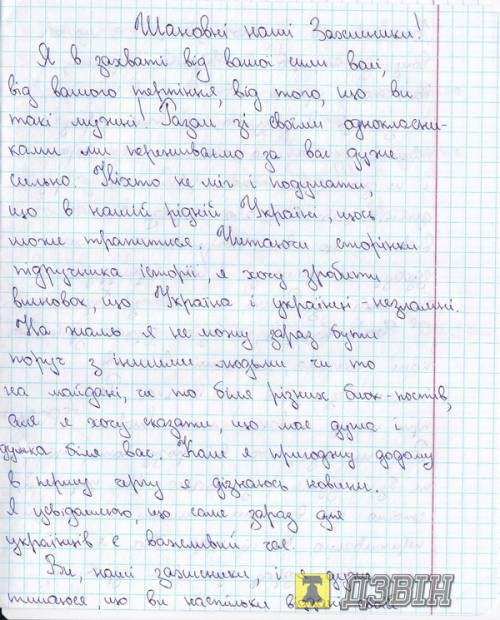 Шановні наші Захисники!
Я в захваті від вашої сили волі,
від вашого терпіння, від того, що ви
такі мужні! Разом зі своїми однокласни-
ками ми переживаємо за вас дуже
сильно. Ніхто не міг і подумати,
що в нашій рідній Україні, щось
може трапитися. Читаючи сторінки
підручника історії, я хочу зробити
висновок, що Україна і українці - незламні.
На жаль я не можу зараз бути
поруч з іншими людьми чи то
на майдані, чи то біля різних блок-постів,
але я хочу сказати, що моя душа і
думка біля вас. Коли я приходжу додому
в першу чергу я дізнаюсь новини.
Я усвідомлюю, що саме зараз для
українців є важливий час.
Ви, наші захисники, і я дуже
тішуся, що ви настільки
ДЗВІН